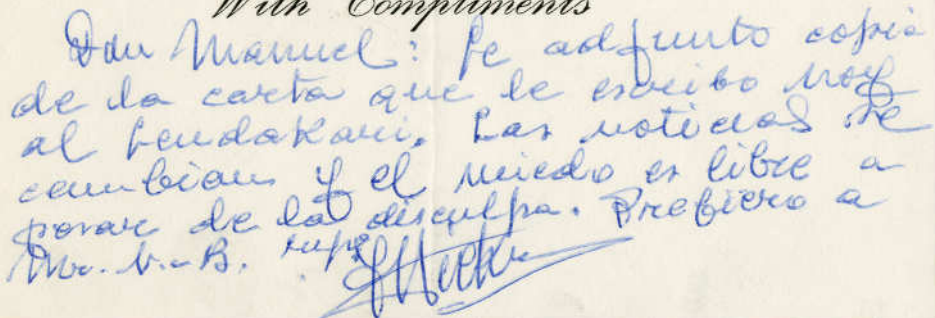 With Compliments
Don Manuel: Le adjunto copia
de la carta que le escribo hoy
al Lendakari. Las noticias se
cambian y el miedo es libre a
pesar de la disculpa. Prefiero a
Mr. V.-B.